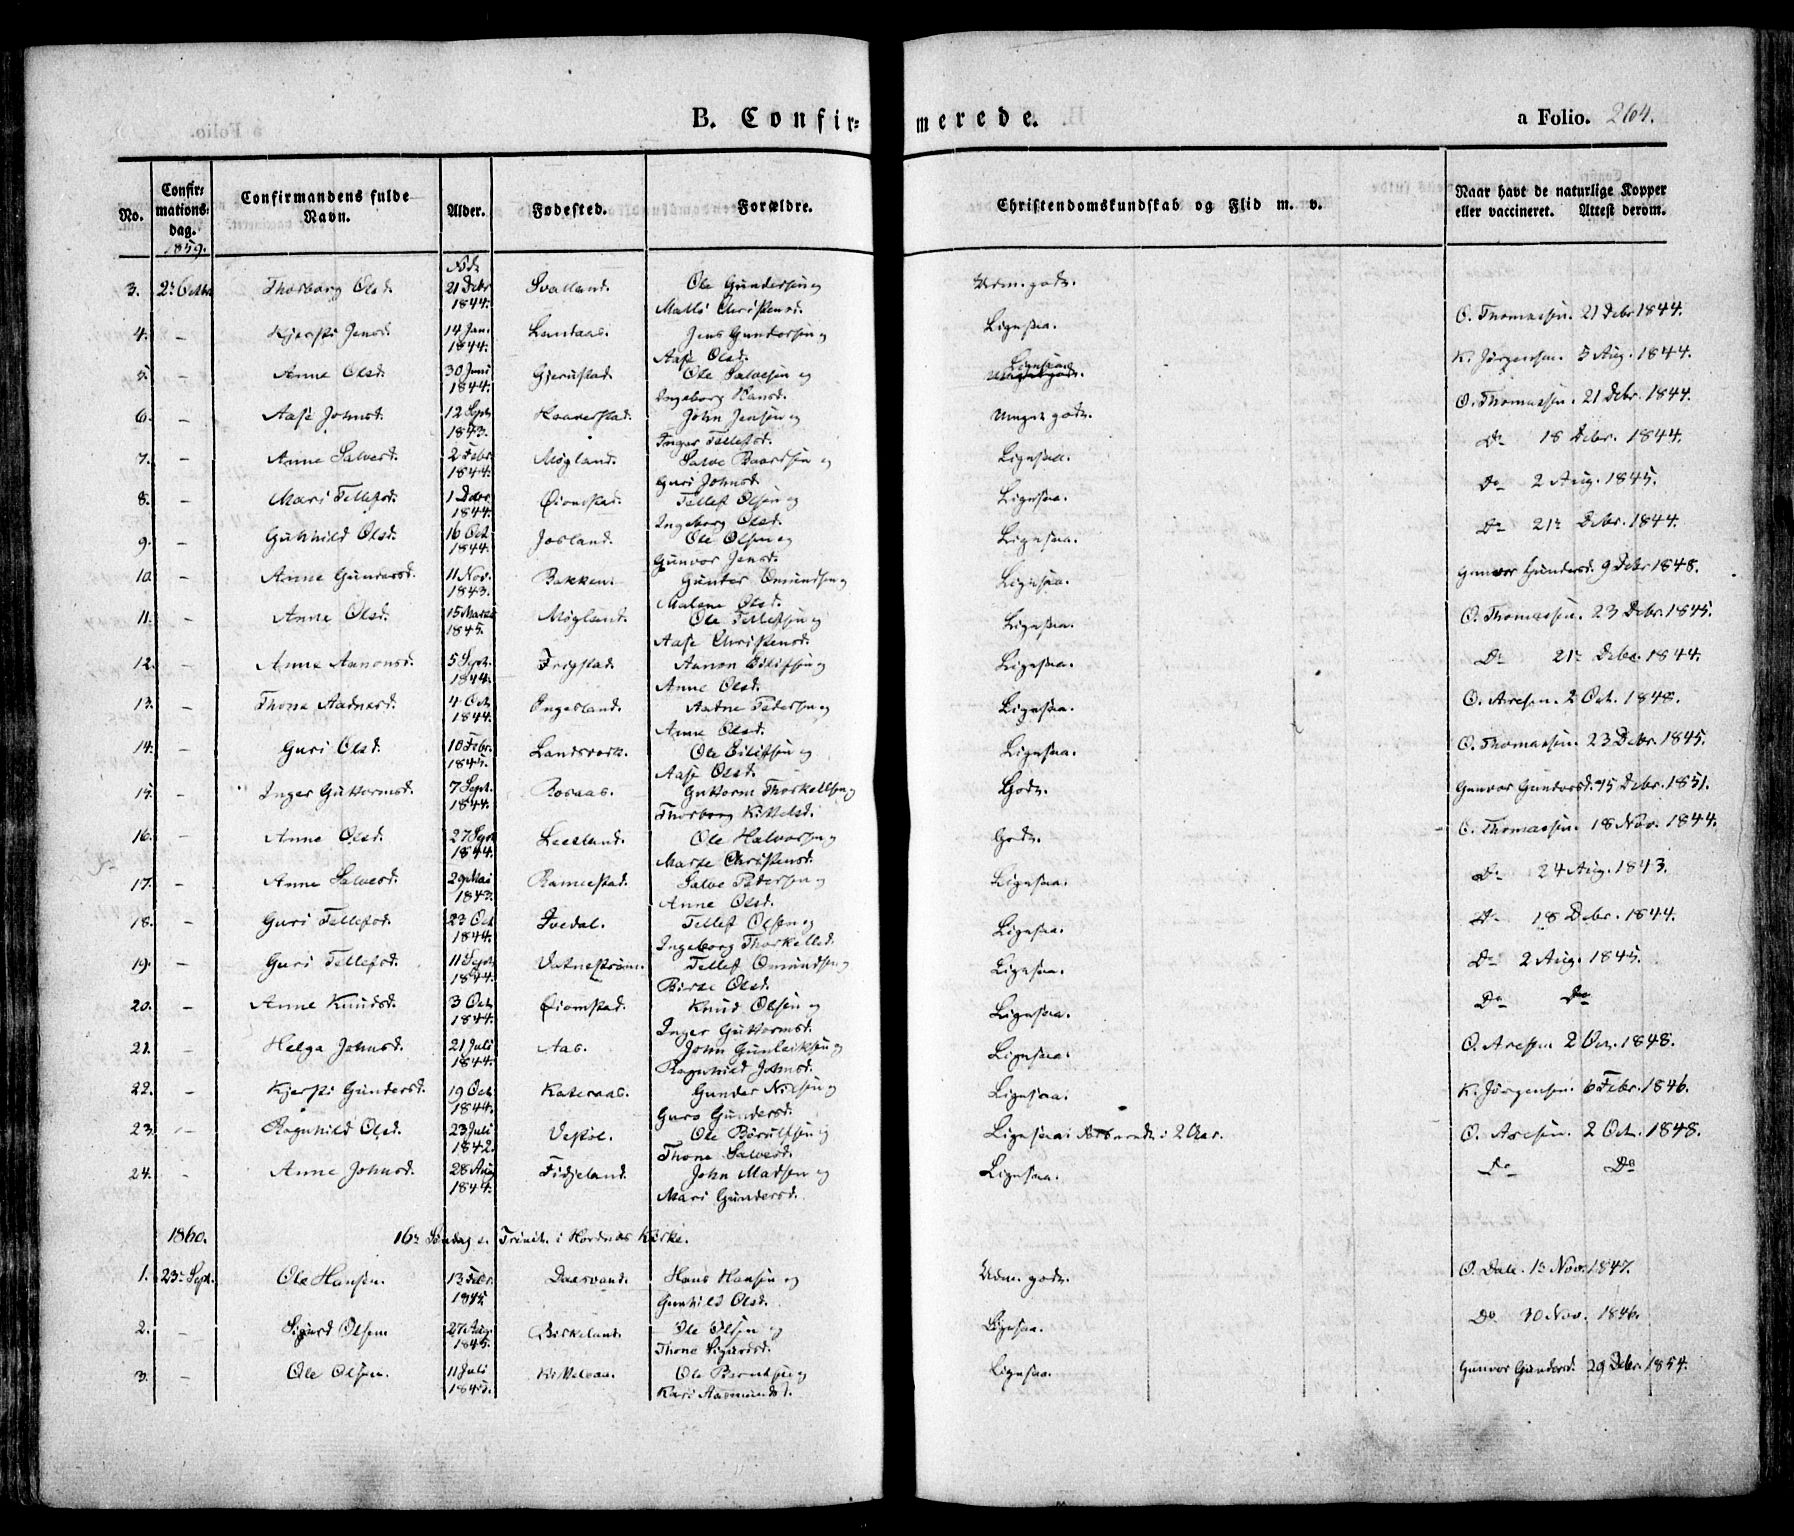 B. Confirmerede. a Folio. 264.
No. Confirmations-dag. Confirmandens fulde Navn. Alder. Fødested. Forældre. Christendomskundskab og Flid m. v. Naar havt de naturlige Kopper eller vaccineret. Attest derom.
1859.
Fød
3. 2 Octbr Thorborg Olsd. 21 Debr 1844. Svalland. Ole Gundersen og Udm. godt.
Christensd. O. Thomassen. 21 Debr 1844.
4. – Kjersti Jensd. 14 Jan. 1844. Landaas. Jens Gundersen og Ligesaa.
Aase Olsd. K. Jørgensen. 5 Aug. 1844.
5. – Anne Olsd. 30 Juni 1844. Gjerustad. Ole Salvesen og Ligesaa
Ingeborg Hansd. O. Thomassen. 21 Debr. 1844.
6. – Aase Johnsd. 12 Sept. 1843. Haaverstad. John Jensen og Meget godt.
Inger Tellefsd. Do 18 Debr. 1844.
7. – Anne Salvesd. 2 Febr. 1844. Møgland. Salve Baardsen og Ligesaa.
Guri Johnsd. Do 2 Aug. 1845.
8. – Mari Tellefsd. 1 Debr. 1844. Øiomstad. Tellef Olsen og Ligesaa.
Ingeborg Olsd. Do 21 Debr. 1844.
9. – Gunhild Olsd. 16 Oct. 1844. Josland. Ole Olsen og Ligesaa.
Gunvor Jensd. Gunvor Gundersd. 9 Debr 1848.
10. – Anne Gundersd. 11 Nov. 1843. Bakken. Gunder Omundsen og Ligesaa.
Malene Olsd. O. Thomassen. 23 Debr. 1845.
11. – Anne Olsd. 15 Marts 1845. Møgland. Ole Tellefsen og Ligesaa.
Aase Christensd. Do 21 Debr. 1844.
12. – Anne Aanonsd. 5 Sept. 1844. Frigstad. Aanon Eilifsen og Ligesaa.
Anne Olsd. O. Aresen. 2 Oct. 1848.
13. – Thone Aadnesd. 4 Oct. 1844. Ingesland. Aadne Pedersen og Ligesaa.
Anne Olsd. O. Thomassen. 23 Debr. 1845.
14. – Guri Olsd. 10 Febr. 1845. Landsverk. Ole Eilifsen og Ligesaa.
Aase Olsd. Gunvor Gundersd. 15 Debr. 1851.
15. – Inger Guttormsd. 7 Sept. 1844. Rosaas. Guttorm Thorkelsen og Godt.
Thorborg Kittelsd. O. Thomassen. 18 Nov. 1844.
16. – Anne Olsd. 27 Sept. 1844. Leesland. Ole Halvorsen og Godt.
Marte Christensd. Do 24 Aug. 1843.
17. – Anne Salvesd. 29 Mai 1843. Rannestad. Salve Pedersen og Ligesaa.
Anne Olsd. Do 18 Debr. 1844.
18. – Guri Tellefsd. 23 Oct 1844. Ivedal. Tellef Olsen og Ligesaa.
Ingeborg Thorkelsd. Do 2 Aug. 1845.
19. – Guri Tellefsd. 11 Sept. 1844. Vatnestrøm. Tellef Omundsen og Ligesaa.
Birte Olsd. Do Do
20. – Anne Knudsd. 3 Oct. 1844. Øiomstad. Knud Olsen og Ligesaa.
Inger Guttormsd. O. Aresen 2 Oct. 1848.
21. – Helga Johnsd. 21 Juli 1844. Aas. John Gunleiksen og Ligesaa.
Ragnhild Johnsd. K. Jørgensen. 6 Febr. 1846.
22. – Kjersti Gundersd. 19 Oct 1844. Kateraas. Gunder Nilsen og Ligesaa.
Guro Gundersd. O. Aresen. 2 Oct. 1848.
23. – Ragnhild Olsd. 23 Juli 1842. Vestøl. Ole Børulfsen og Ligesaa; forberedt i 2 Aar.
Thone Salvesd. Do Do
24. – Anne Johnsd. 28 Aug 1844. Fidjeland. John Madsen og Ligesaa.
Mari Gundersd.
1860. 16de Søndag e. Trinit. i Hordnæs Kirke.
1. 23de Sept. Ole Hansen. 13 1845. Daasvand. Hans Hansen og Udm. godt. O. Dale. 13 Nov. 1847.
Gunhild Olsd.
2. – Sigurd Olsen. 27 Aug. 1845. Birkeland. Ole Olsen og Ligesaa. Do 30 Nov. 1846.
Thone Sigurdsd.
3. – Ole Olsen. 11 Juli 1845. Kittelsaa. Ole Berntsen og Ligesaa. Gunvor Gundersd. 29 Debr. 1854.
Kari Aasmundsd.